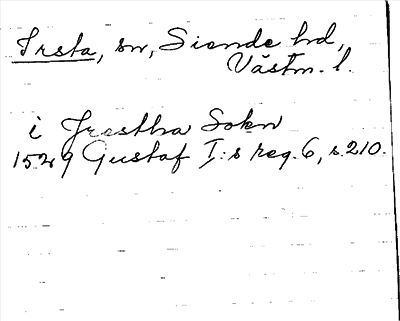 Irsta, sn, Siende hd,
Västm. l.
i Jrestha Sokn
1529 Gustaf I:s reg. 6, s. 210.